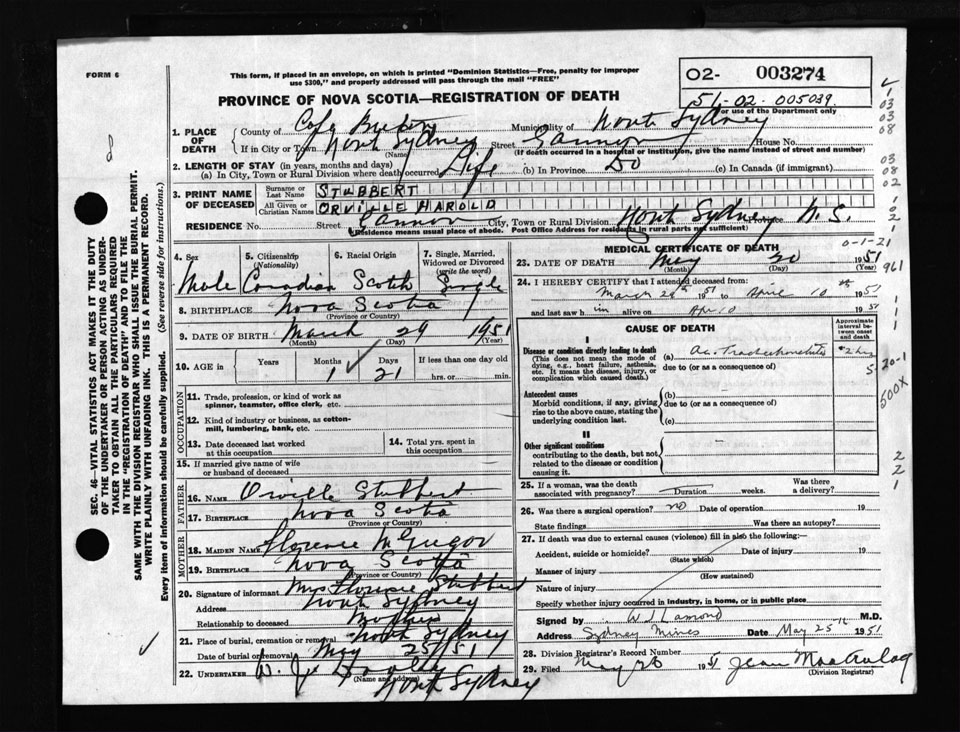 FORM 6
This form, if placed in an envelope, on which is printed "Dominion Statistics—Free, penalty for improper
use $300," and properly addressed will pass through the mail "FREE"
O2- 003274
51-02-005039
For use of the Department only
PROVINCE OF NOVA SCOTIA—REGISTRATION OF DEATH
1. PLACE OF DEATH
County of Cape Breton Municipality of North Sydney
If in City or Town North Sydney Street House No.
(Name) (If death occurred in a hospital or institution, give the name instead of street and number)
2. LENGTH OF STAY (in years, months and days)
(a) In City, Town or Rural Division where death occurred Life (b) In Province Do (c) In Canada (if immigrant)
3. PRINT NAME OF DECEASED
Surname or Last Name STUBBERT
All Given or Christian Names ORVILLE HAROLD
RESIDENCE No. Street City, Town or Rural Division North Sydney Province N.S.
(Residence means usual place of abode. Post Office Address for residents in rural parts not sufficient)
4. Sex Male
5. Citizenship (Nationality) Canadian
6. Racial Origin Scotch
7. Single, Married, Widowed or Divorced (write the word) Single
8. BIRTHPLACE Nova Scotia
(Province or Country)
9. DATE OF BIRTH March 29 1951
(Month) (Day) (Year)
10. AGE in Years Months 1 Days 21 If less than one day old
hrs. or min.
OCCUPATION
11. Trade, profession, or kind of work as
spinner, teamster, office clerk, etc.
12. Kind of industry or business, as cotton-
mill, lumbering, bank, etc.
13. Date deceased last worked
at this occupation
14. Total yrs. spent in
this occupation
15. If married give name of wife
or husband of deceased
FATHER
16. NAME Orville Stubbert
17. BIRTHPLACE Nova Scotia
(Province or Country)
MOTHER
18. MAIDEN NAME Florence McGregor
19. BIRTHPLACE Nova Scotia
(Province or Country)
20. Signature of informant Mrs Florence Stubbert
Address North Sydney
Relationship to deceased Mother
21. Place of burial, cremation or removal North Sydney
Date of burial or removal May 25/51
22. UNDERTAKER W. J. Dooley
(Name and address) North Sydney
MEDICAL CERTIFICATE OF DEATH
23. DATE OF DEATH May 20 1951
(Month) (Day) (Year)
24. I HEREBY CERTIFY that I attended deceased from:
March 29th 1951 to April 10th 1951
and last saw him alive on Apr 10 1951
CAUSE OF DEATH
Approximate interval between onset and death
I
Disease or condition directly leading to death
(This does not mean the mode of
dying, e.g., heart failure, asthenia,
etc. It means the disease, injury, or
complication which caused death.)
(a) Ac.
due to (or as a consequence of)
Antecedent causes
Morbid conditions, if any, giving
rise to the above cause, stating the
underlying condition last.
(b)
due to (or as a consequence of)
(c)
II
Other significant conditions
contributing to the death, but not
related to the disease or condition
causing it.
25. If a woman, was the death
associated with pregnancy? Duration weeks. Was there
a delivery?
26. Was there a surgical operation? no Date of operation 19
State findings Was there an autopsy?
27. If death was due to external causes (violence) fill in also the following:
Accident, suicide or homicide? Date of injury 19
(State which)
Manner of injury
(How sustained)
Nature of injury
Specify whether injury occurred in industry, in home, or in public place
Signed by Lamond M.D.
Address Sydney Mines Date May 25th 1951
28. Division Registrar's Record Number
29. Filed May 28 1951 Jean MacAulay
(Division Registrar)
SEC. 46—VITAL STATISTICS ACT MAKES IT THE DUTY
OF THE UNDERTAKER OR PERSON ACTING AS UNDER-
TAKER TO OBTAIN ALL THE PARTICULARS REQUIRED
IN THE "REGISTRATION OF DEATH" AND TO FILE THE
SAME WITH THE DIVISION REGISTRAR WHO SHALL ISSUE THE BURIAL PERMIT.
WRITE PLAINLY WITH UNFADING INK. THIS IS A PERMANENT RECORD.
Every item of information should be carefully supplied. (See reverse side for instructions.)
8
1
03
03
08
03
08
02
0-1-21
961
20-1
500X
2
2
1